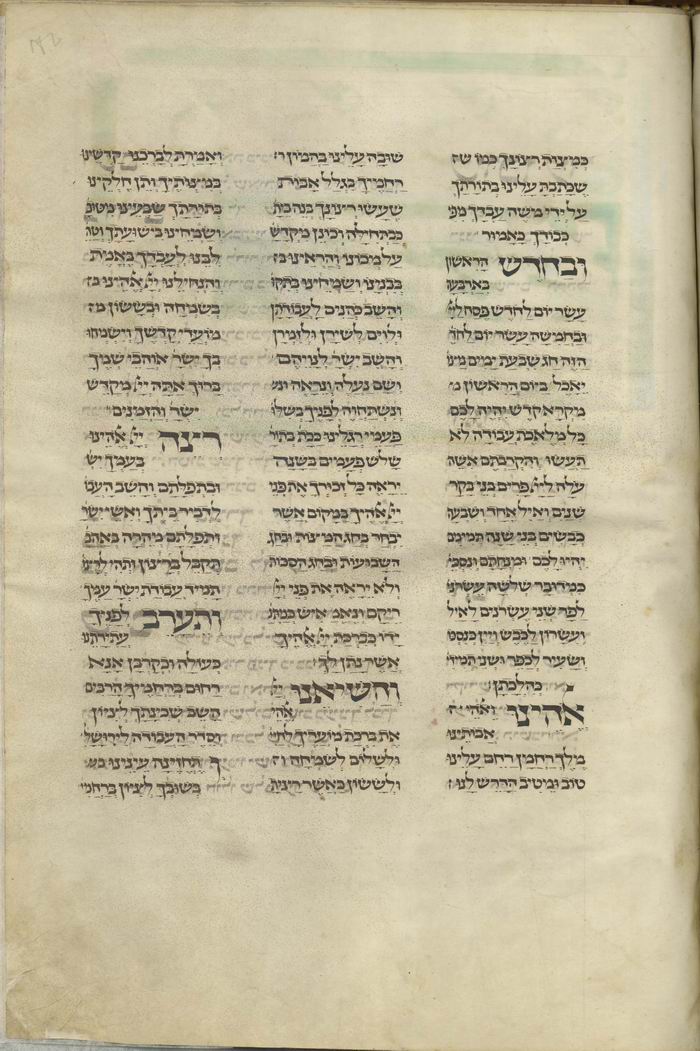 כמצות רצונך כמו ש
שכתבת עלינו בתורתך
על ידי משה עבדך מפי
כבודך כאמור
ובחדש הראשון
בארבעה
עשר יום לחדש פסח ליי
ובחמשה עשר יום לחד
הזה חג שבעת ימים מצו
יאכל ביום הראשון מ
מקרא קדש יהיה לכם
כל מלאכת עבודה לא
תעשו והקרבתם אשה
עלה ליי פרים בני בקר
שנים ואיל אחד ושבעה
כבשים בני שנה תמימים
יהיו לכם ומנחתם ונסכי
כמדובר שלשה עשרני
לפר שני עשרנים לאיל
ועשרון לכבש ויין כנסכו
ושעיר לכפר ושני תמידי
כהלכתן
אהינו ואהי
אבותינו
מלך רחמן רחם עלינו
טוב ומטיב הדרש לנו
שובה עלינו בהמון ר
רחמיך בגלל אבות
שעשו רצונך בנה בת
כבתחילה וכונן מקדש
על מכונו והראינו ב
בבנינו ושמחינו בתקו
והשב כהנים לעבודתן
ולוים לשירן ולזמרן
והשב ישר לנויהם
ושם נעלה ונראה ונש
ונשתחוה לפניך בשלו
פעמי רגלינו ככת בתור
שלש פעמים בשנה
יראה כל זכורך את פני
יי אהיך במקום אשר
יבחר בחג המצות ובחג
השבועות ובחג הסכות
ולא יראה את פני יי
ריקם ונאמ איש כמתנ
ידו כברכת יי אהיך
אשר נתן לך
והשיאנו יי
אהי
את ברכת מועדיך לחי
ולשלום לשמחה ו
ולששון כאשר רצית
ואמרת לברכנו קדשינו
במצותיך ותן חלקינו
בתורתך שבעינו מטוב
ושמחינו בישועתך וטה
לבנו לעבדך באמת
והנחילנו יי אהינו ב
בשמחה ובששון מ
מועדי קדשך וישמחו
בך ישר אוהבי שמך
ברוך אתה יי מקדש
ישר והזמנים
רצה יי אהינו
בעמך יש
ובתפלתם והשב העבו
לדביר ביתך ואשי ישר
ותפלתם מהרה באהב
תקבל ברצון ותהי לרצו
תמיד עבודת ישר עמך
ותערב לפניך
עתירתנו
כעולה וכקרבן אנא
רחום ברחמיך הרבים
השב שכינתך לציון
וסדר העבודה לירושל
ותחזינה עינינו ב
בשובך לציון ברחמי